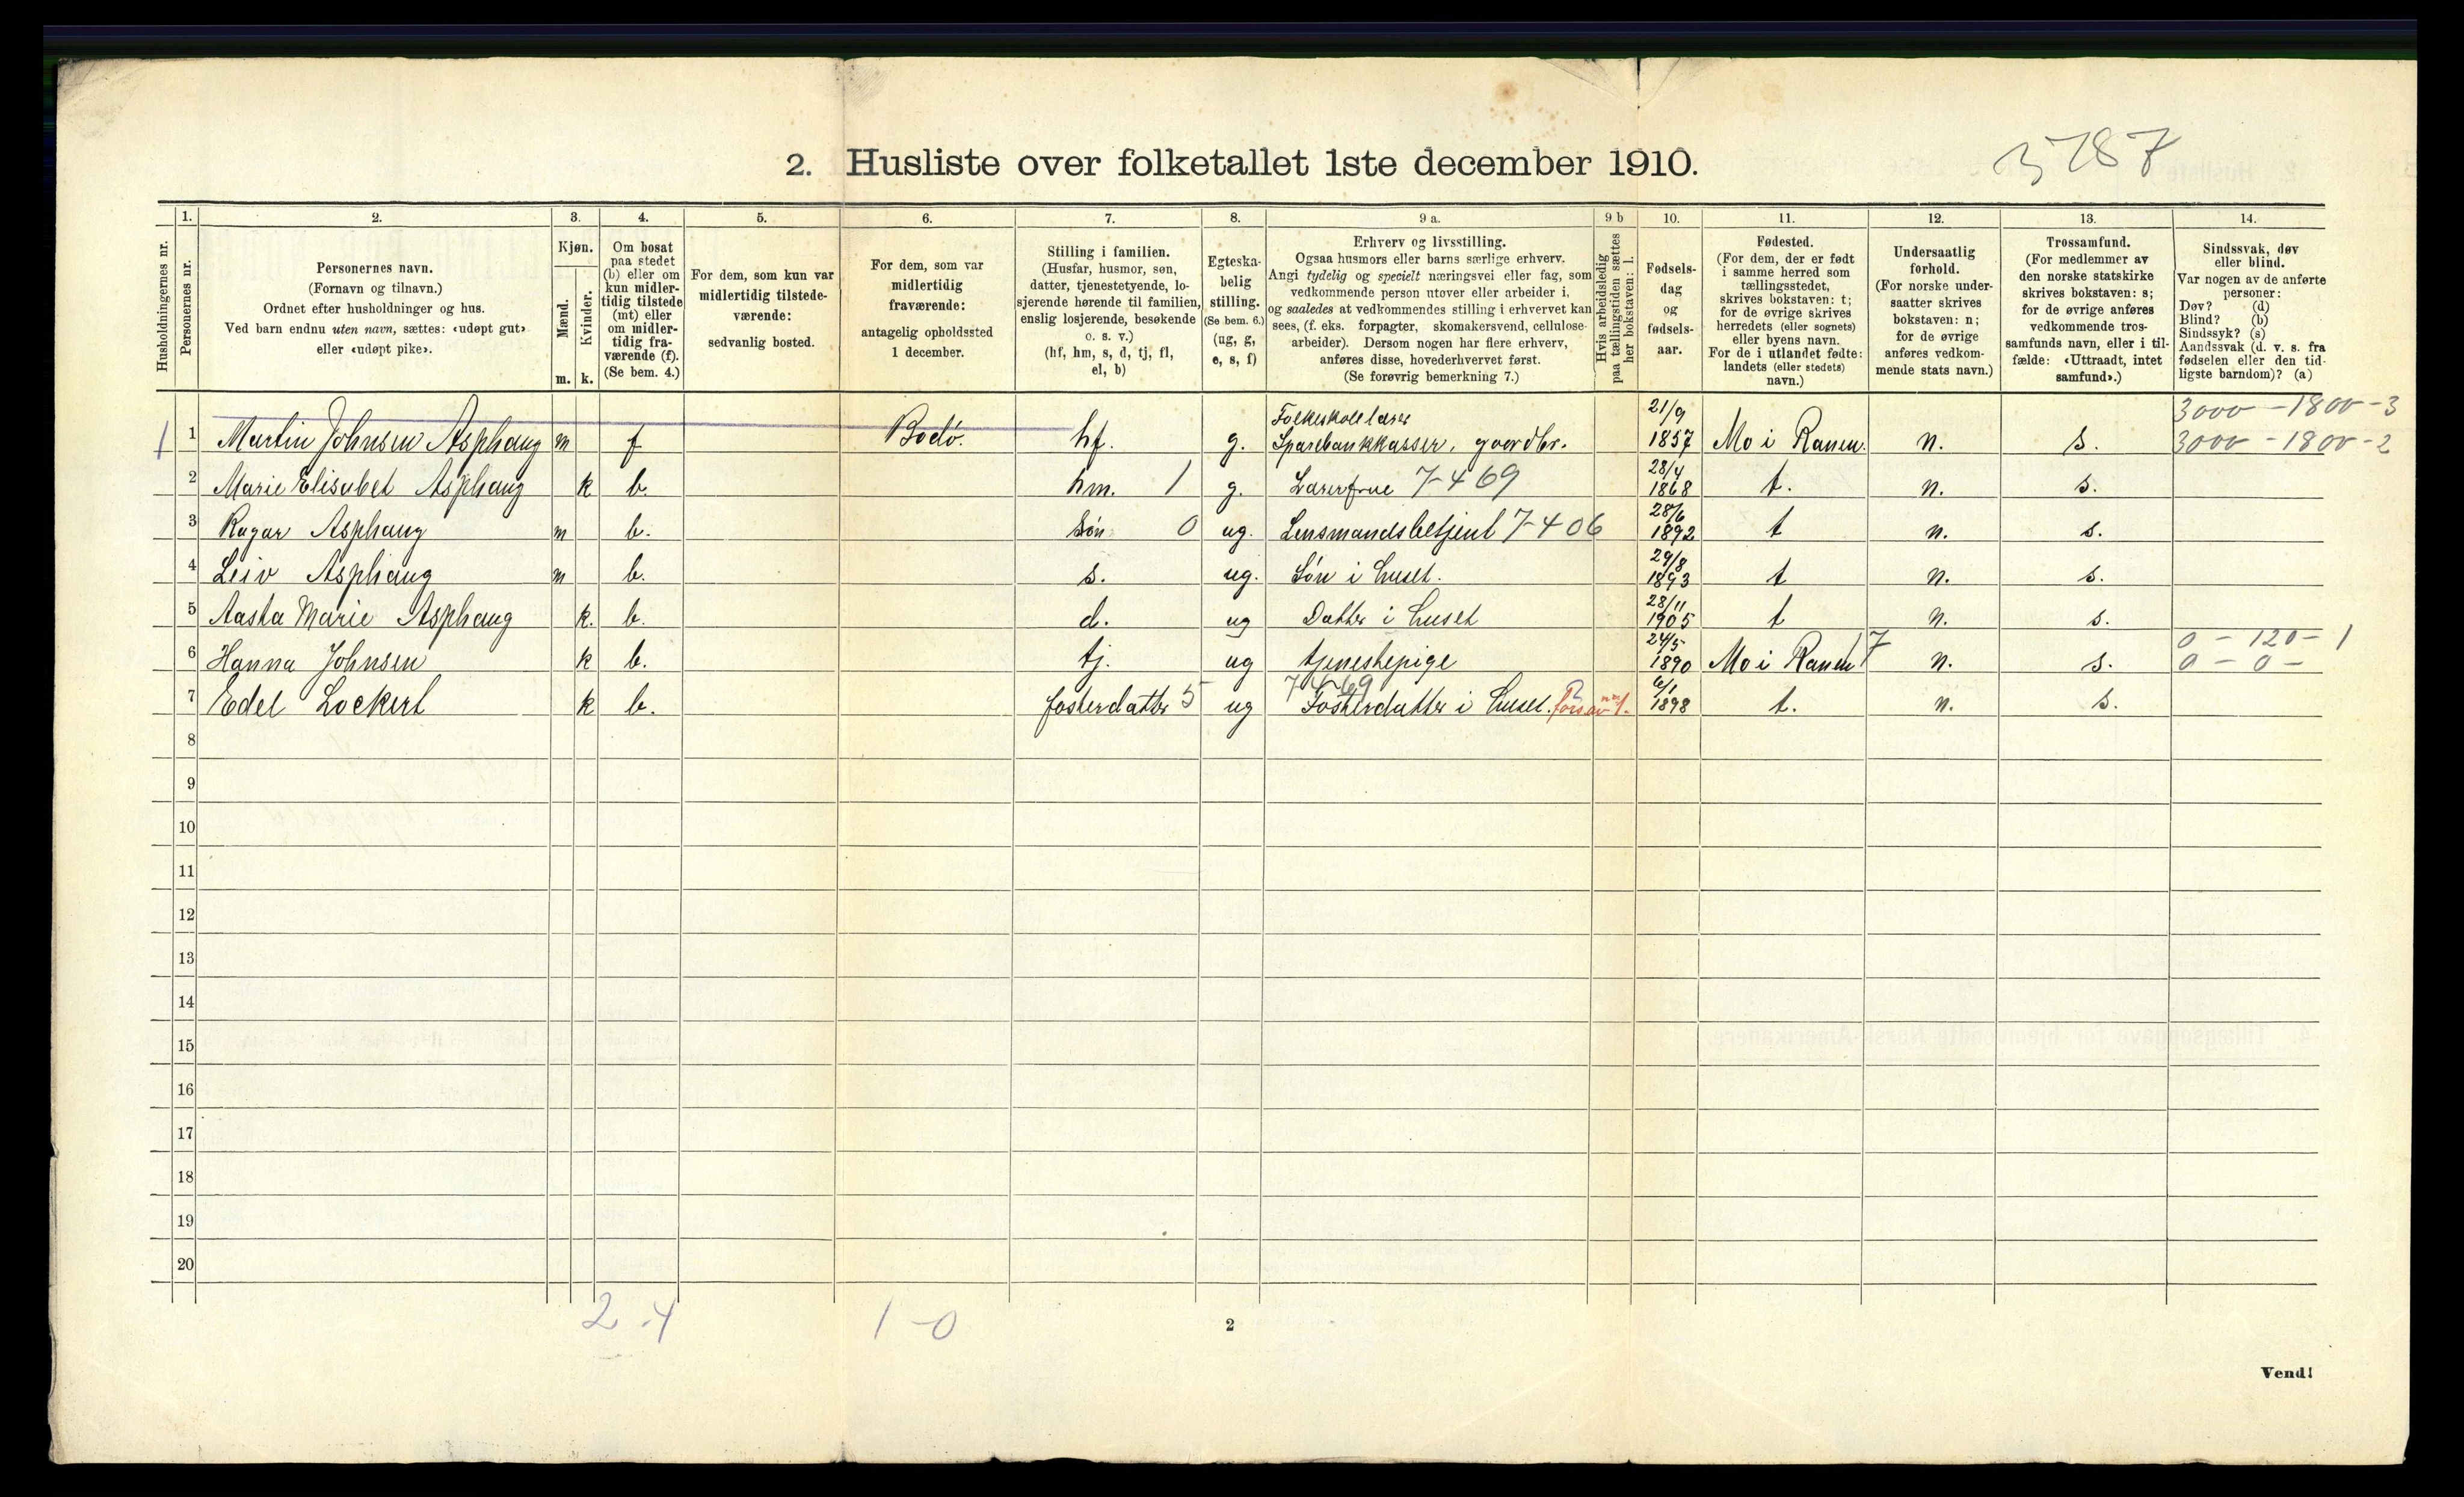 2. Husliste over folketallet 1ste december 1910.
3787
1. 2. 3. 4. 5. 6. 7. 8. 9 a. 9 b 10. 11. 12. 13. 14.
Husholdningernes nr.
Personernes nr.
Personernes navn.
(Fornavn og tilnavn.)
Ordnet efter husholdninger og hus.
Ved barn endnu uten navn, sættes: «udøpt gut»
eller «udøpt pike».
Kjøn.
Mænd.
Kvinder.
m. k.
Om bosat
paa stedet
(b) eller om
kun midler-
tidig tilstede
(mt) eller
om midler-
tidig fra-
værende (f).
(Se bem. 4.)
For dem, som kun var
midlertidig tilstede-
værende:
sedvanlig bosted.
For dem, som var
midlertidig
fraværende:
antagelig opholdssted
1 december.
Stilling i familien.
(Husfar, husmor, søn,
datter, tjenestetyende, lo-
sjerende hørende til familien,
enslig losjerende, besøkende
o. s. v.)
(hf, hm, s, d, tj, fl,
el, b)
Egteska-
belig
stilling.
(Se bem. 6.)
(ug, g,
e, s, f)
Erhverv og livsstilling.
Ogsaa husmors eller barns særlige erhverv.
Angi tydelig og specielt næringsvei eller fag, som
vedkommende person utøver eller arbeider i,
og saaledes at vedkommendes stilling i erhvervet kan
sees, (f. eks. forpagter, skomakersvend, cellulose-
arbeider). Dersom nogen har flere erhverv,
anføres disse, hovederhvervet først.
(Se forøvrig bemerkning 7.)
Hvis arbeidsledig
paa tællingstiden sættes
her bokstaven: l.
Fødsels-
dag
og
fødsels-
aar.
Fødested.
(For dem, der er født
i samme herred som
tællingsstedet,
skrives bokstaven: t;
for de øvrige skrives
herredets (eller sognets)
eller byens navn.
For de i utlandet fødte:
landets (eller stedets)
navn.)
Undersaatlig
forhold.
(For norske under-
saatter skrives
bokstaven: n;
for de øvrige
anføres vedkom-
mende stats navn.)
Trossamfund.
(For medlemmer av
den norske statskirke
skrives bokstaven: s;
for de øvrige anføres
vedkommende tros-
samfunds navn, eller i til-
fælde: «Uttraadt, intet
samfund».)
Sindssvak, døv
eller blind.
Var nogen av de anførte
personer:
Døv? (d)
Blind? (b)
Sindssyk? (s)
Aandssvak (d. v. s. fra
fødselen eller den tid-
ligste barndom)? (a)
Folkeskolelærer 21/9 3000 - 1800 - 3
1 1 Martin Johnsen Asphaug m f Bodö. hf. g. Sparebankkasser, gaardbr. 1857 Mo i Ranen. n. s. 3000 - 1800 - 2
28/4
2 Marie Elisabet Asphaug k b. hm. 1 g. Lærerfrue 7-469 1868 t. n. s.
28/6
3 Ragar Asphaug m b. søn 0 ug. Lensmandsbetjent 7-406 1892 t n. s.
29/8
4 Leiv Asphaug m b. s. ug. Sön i huset. 1893 t n. s.
28/11
5 Aasta Marie Asphaug k. b. d. ug Datter i huset 1905 t n. s.
24/5 7 0 - 120 - 1
6 Hanna Johnsen k b. tj. ug tjenestepige 1890 Mo i Ranen n. s. 0 - 0 -
7469 6/1
7 Edel Lockert k b. fosterdatter 5 ug Fosterdatter i huset. fors. av nr 1. 1898 t. n. s.
8
9
10
11
12
13
14
15
16
17
18
19
20
2-4 1-0
2
Vend!